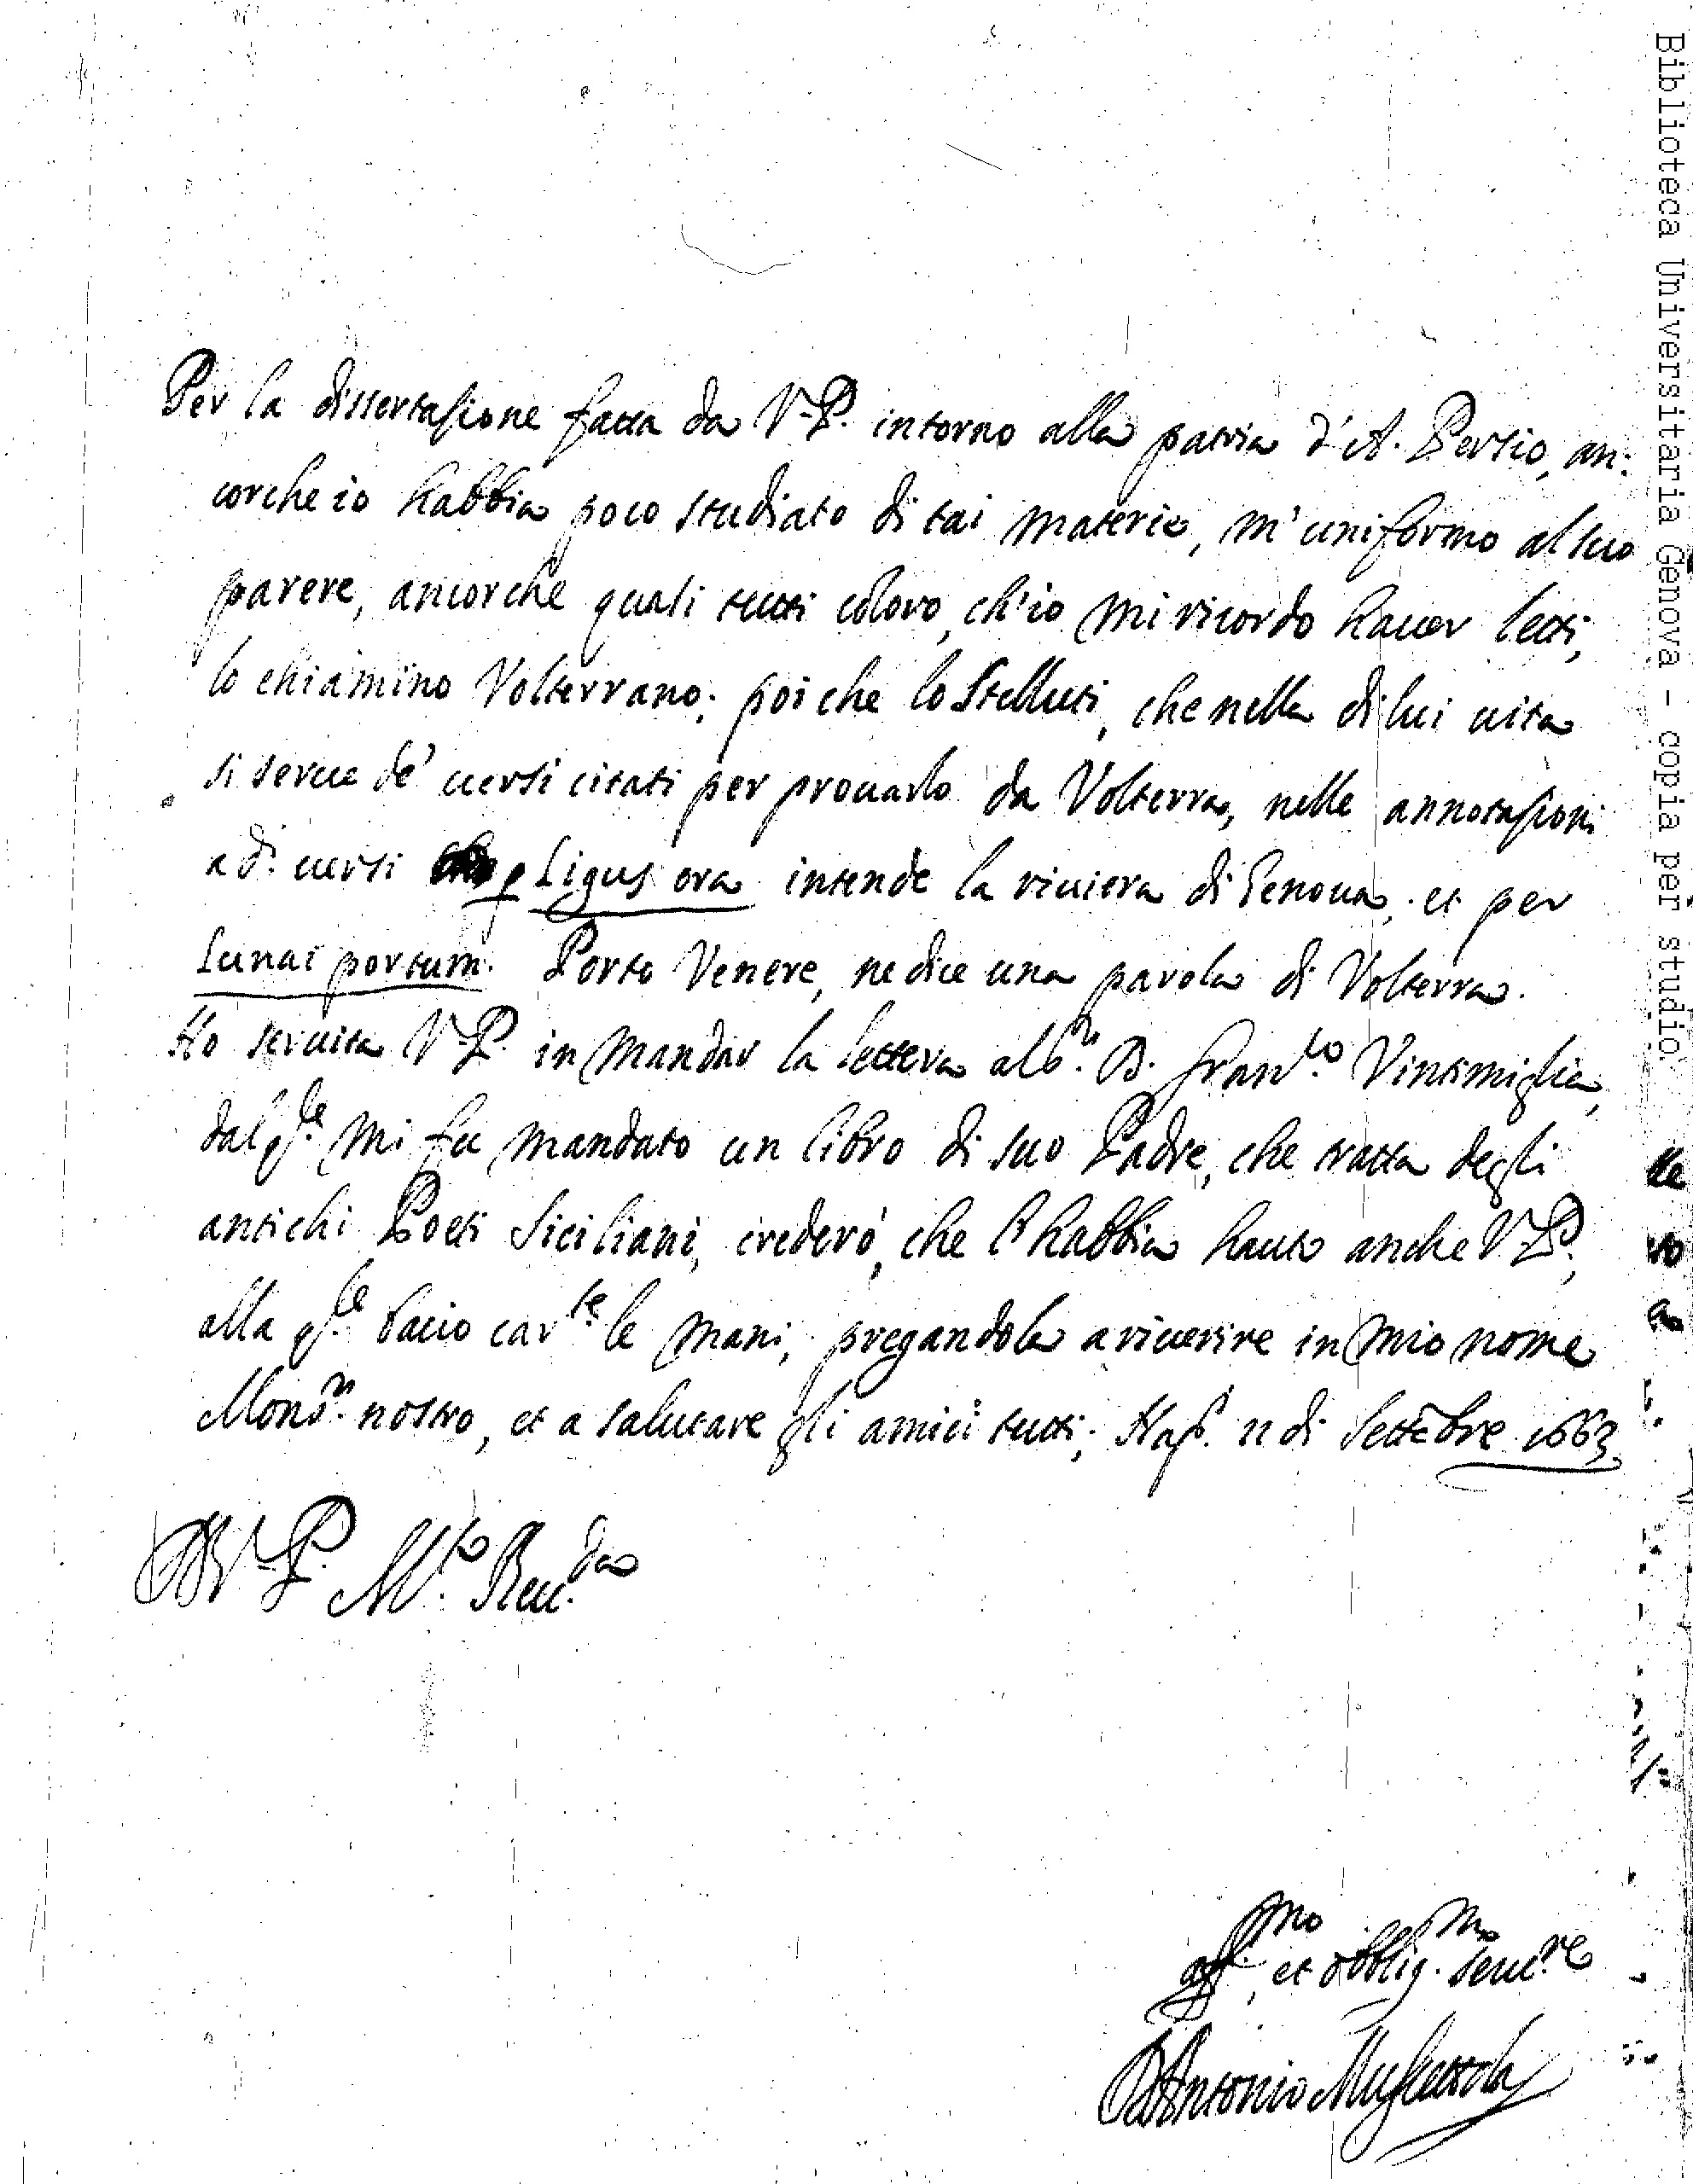 Per la dissertatione fatta da V. P. intorno alla patria d'A. Persio, an:
corche io habbia poco studiato di tai materie, m'uniformo al suo
parere, ancorche quasi tutti coloro, ch'io mi ricordo hauer letti,
lo chiamino Volterrano; poi che lo Stelluti, che nella di lui uita
si serue de' uersi citati per prouarlo da Volterra, nelle annotationi
a di uersi p Ligus ora intende la riuiera di Genoua, et per
Lunai portum. Porto Venere, ne dice una parola di Volterra.
Ho seruita V. P. in mandar la lettera al S.r D. Fran.co Vintimiglia,
dal q.le mi fu mandato un libro di suo Padre, che tratta degli
antichi Poeti Siciliani, crederó, che l'habbia hauto anche V. P.,
alla q.le bacio car.te le mani, pregandola a riuerire in mio nome
Mons.r nostro, et a salutare gli amici tutti; Nap. 11 di Settēbre 1663.
D V. P. M.to Reu.da
aff.mo et obblig.mo seru.re
D Antonio Muscettola
Biblioteca Universitaria Genova - copia per studio.